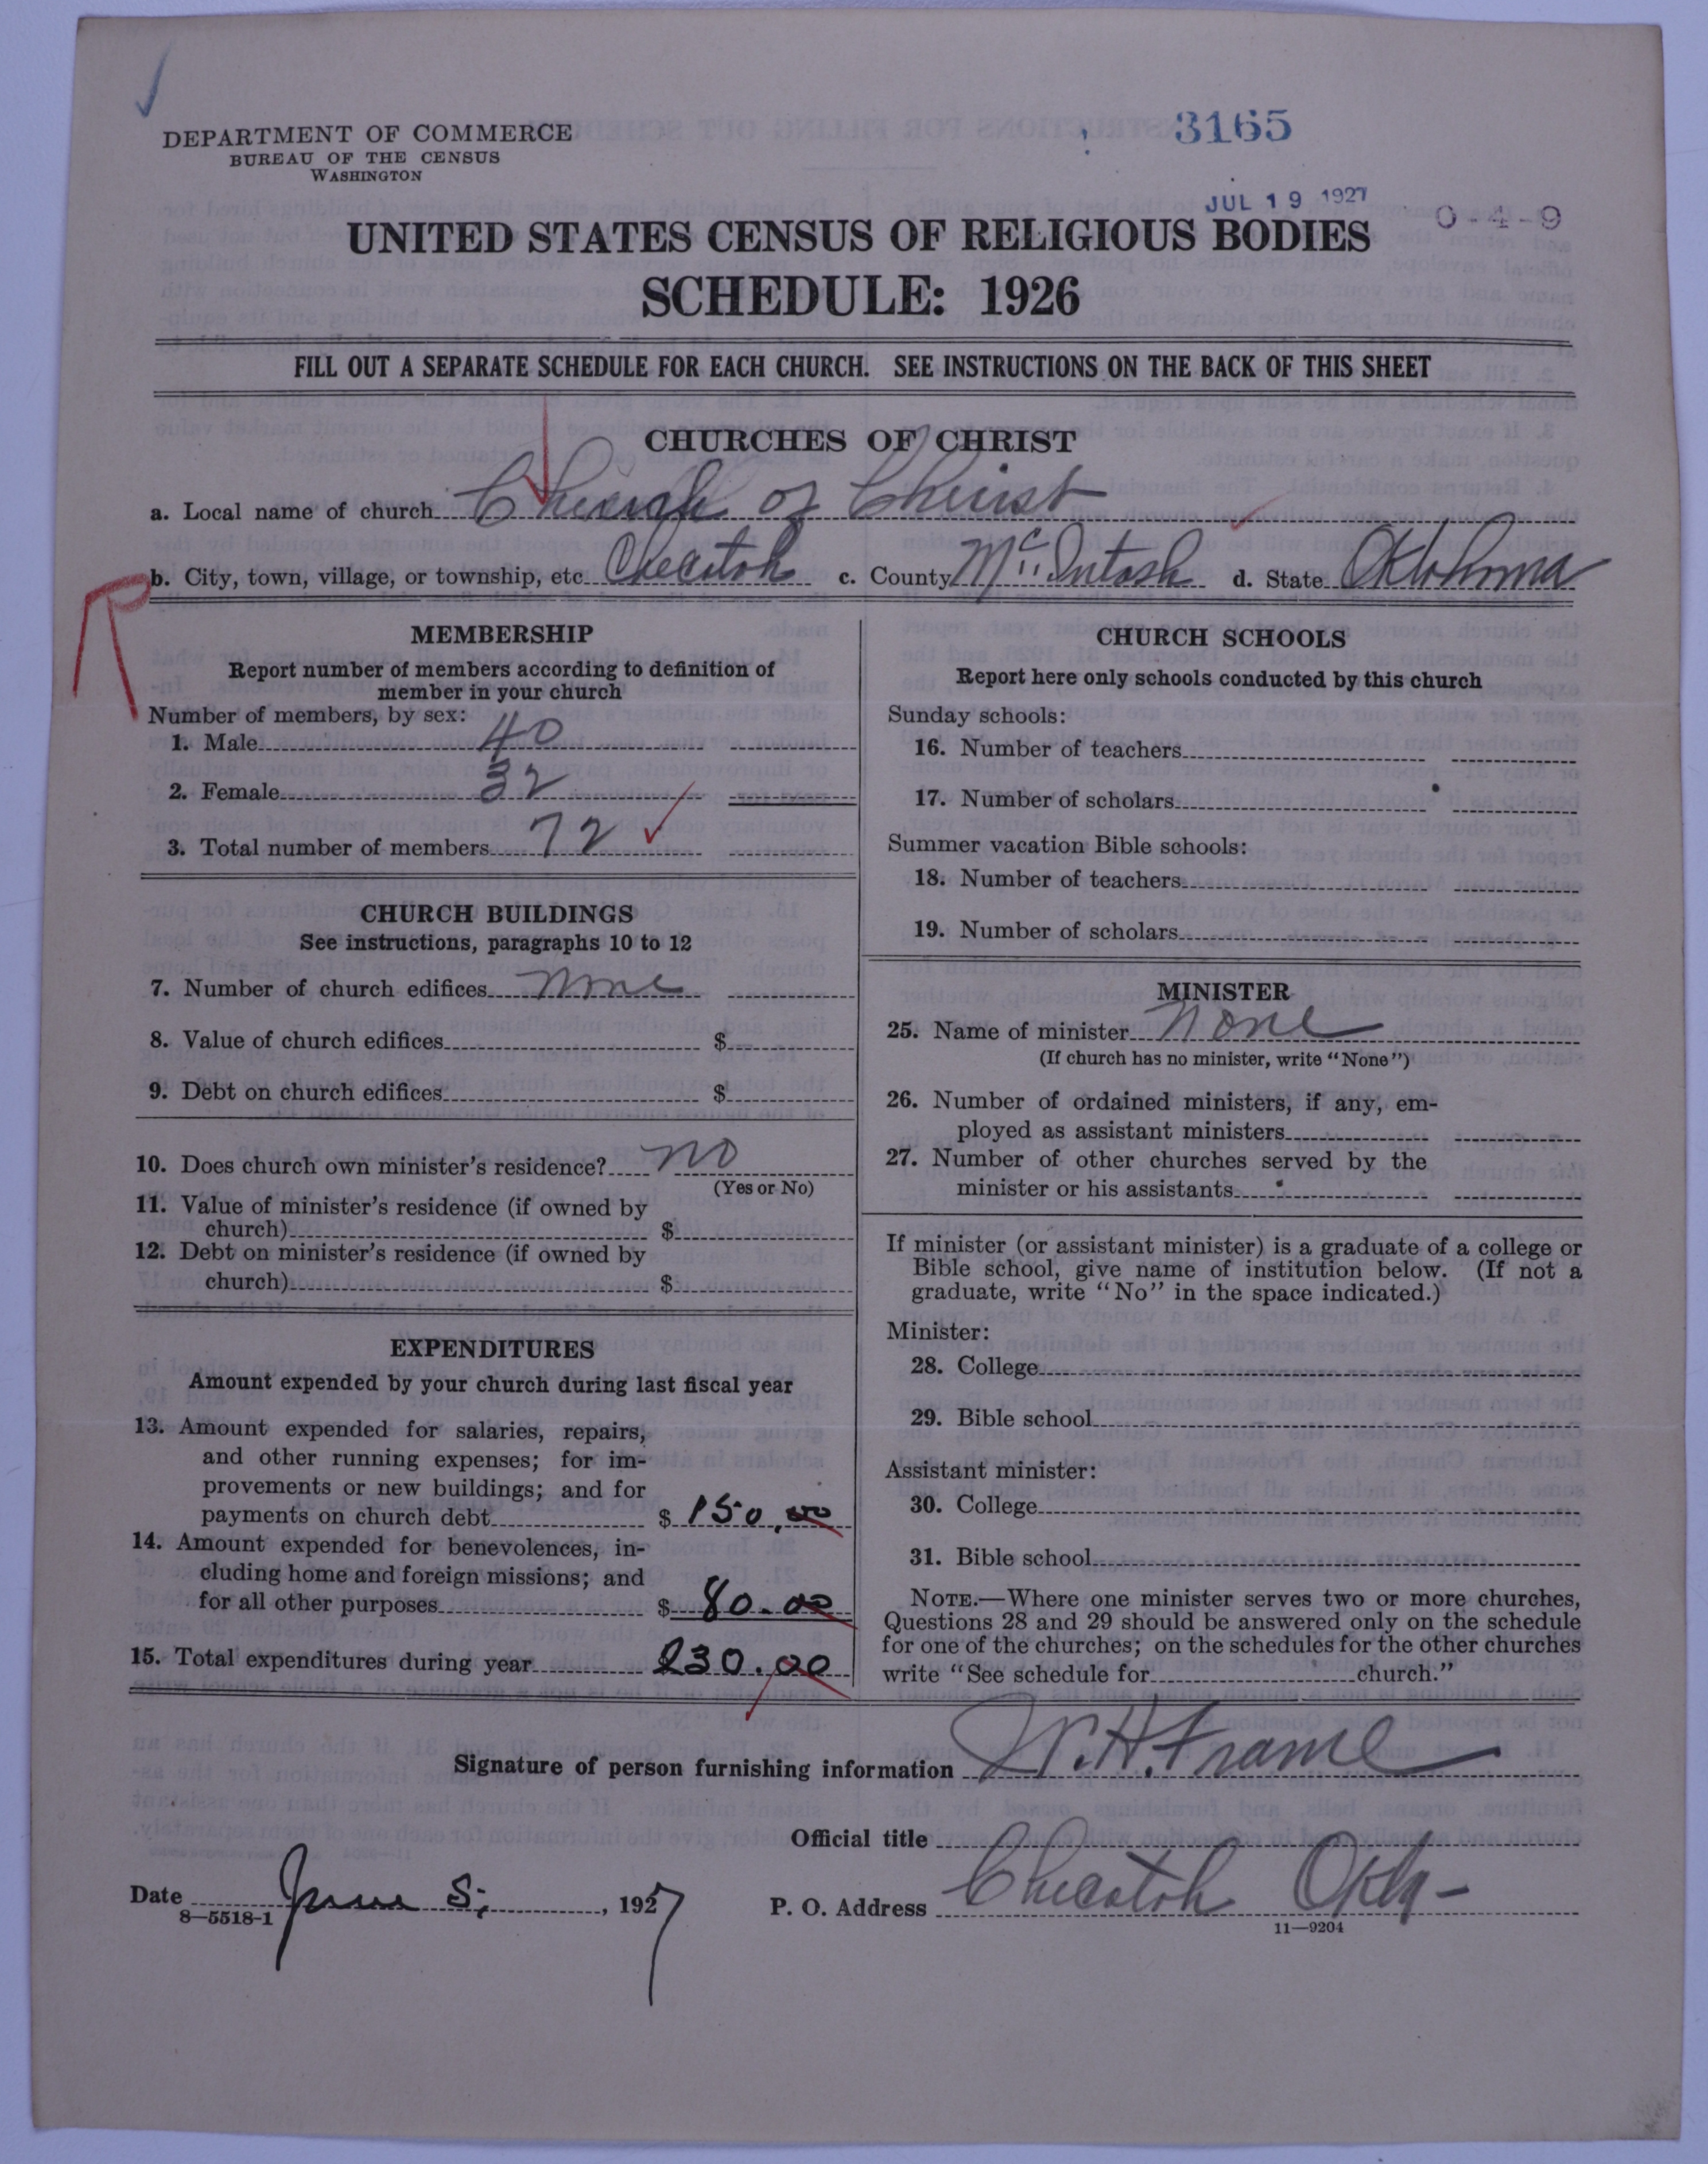 DEPARTMENT OF COMMERCE
BUREAU OF THE CENSUS
WASHINGTON
3165
JUL 19 1927
0-4-9
UNITED STATES CENSUS OF RELIGIOUS BODIES
SCHEDULE: 1926
FILL OUT A SEPARATE SCHEDULE FOR EACH CHURCH. SEE INSTRUCTIONS ON THE BACK OF THIS SHEET
CHURCHES OF CHRIST
a. Local name of church Church of Christ
b. City, town, village, or township, etc. Checotah c. County McIntosh d. State Oklahoma
MEMBERSHIP
Report number of members according to definition of
member in your church
Number of members, by sex:
1. Male 40
2. Female 32
3. Total number of members 72
CHURCH BUILDINGS
See instructions, paragraphs 10 to 12
7. Number of church edifices none
8. Value of church edifices $
9. Debt on church edifices $
10. Does church own minister's residence? no
(Yes or No)
11. Value of minister's residence (if owned by
church) $
12. Debt on minister's residence (if owned by
church) $
EXPENDITURES
Amount expended by your church during last fiscal year
13. Amount expended for salaries, repairs,
and other running expenses; for im-
provements or new buildings; and for
payments on church debt $ 150.00
14. Amount expended for benevolences, in-
cluding home and foreign missions; and
for all other purposes $ 80.00
15. Total expenditures during year 230.00
CHURCH SCHOOLS
Report here only schools conducted by this church
Sunday schools:
16. Number of teachers
17. Number of scholars
Summer vacation Bible schools:
18. Number of teachers
19. Number of scholars
MINISTER
25. Name of minister None
(If church has no minister, write "None")
26. Number of ordained ministers, if any, em-
ployed as assistant ministers
27. Number of other churches served by the
minister or his assistants
If minister (or assistant minister) is a graduate of a college or
Bible school, give name of institution below. (If not a
graduate, write "No" in the space indicated.)
Minister:
28. College
29. Bible school
Assistant minister:
30. College
31. Bible school
NOTE.—Where one minister serves two or more churches,
Questions 28 and 29 should be answered only on the schedule
for one of the churches; on the schedules for the other churches
write "See schedule for church."
Signature of person furnishing information W. H. Frame
Official title
Date June 5, 1927
P. O. Address Checotah Okla-
8—5518-1
11—9204